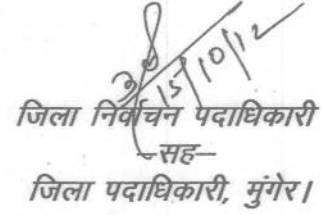 15/10/12
जिला निर्वाचन पदाधिकारी
–सह–
जिला पदाधिकारी, मुंगेर।